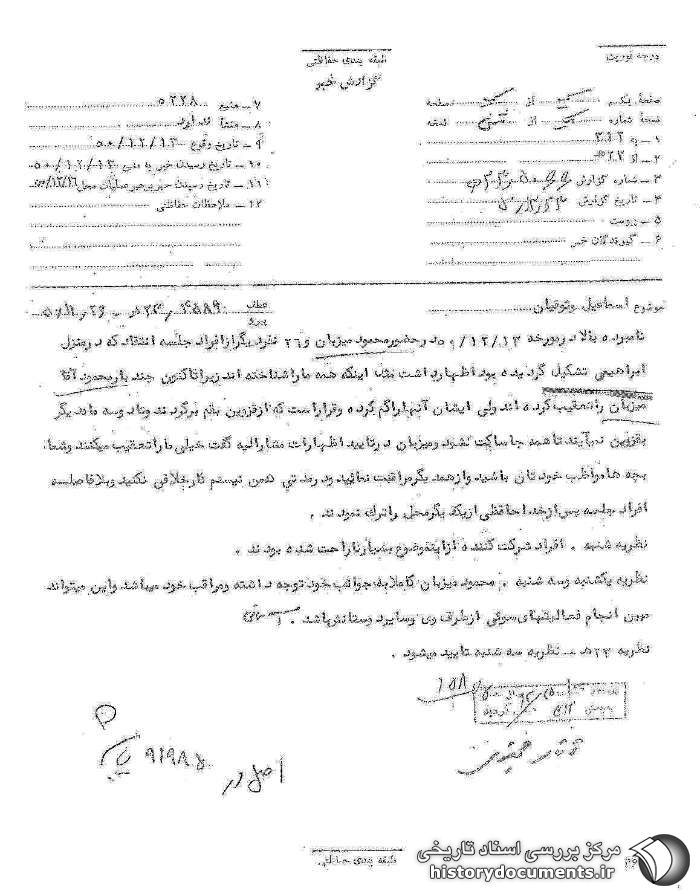 درجه فوریت
طبقه بندی حفاظتی
گزارش خبر
صفحه یکم از صفحه
نسخه شماره از نسخه
۱ ـ به ۳۱۲
۲ ـ از
۳ ـ شماره گزارش
۴ ـ تاریخ گزارش
۵ ـ پیوست
۶ ـ گیرندگان خبر
۷ ـ منبع ۵۲۲۸
۸ ـ منشأ
۹ ـ تاریخ وقوع ۵۰/۱۲/۱۳
۱۰ ـ تاریخ رسیدن خبر به منبع ۵۰/۱۲/۱۳
۱۱ ـ تاریخ رسیدن خبر به رهبر عملیات محل
۱۲ ـ ملاحظات حفاظتی
موضوع اسماعیل وثوقیان
عطف
پیرو
نامبرده بالا در مورخه ۵۰/۱۲/۱۳ در حضور محمود میزبان و ۲۶ نفر دیگر از افراد جلسه انتقاد که در منزل
ابراهیمی تشکیل گردیده بود اظهار داشت مثل اینکه همه ما را شناخته اند زیرا تاکنون چند بار محمود آقا
میزبان را تعقیب کرده اند ولی ایشان آنها را گم کرده و قرار است که از قزوین بقم برگردند و تا دو سه ماه دیگر
بقزوین نیایند تا همه جا ساکت بشود و میزبان در تایید اظهارات مشارالیه گفت خیلی ما را تعقیب میکنند و شما
بچه ها مواظب خودتان باشید و از همدیگر مراقبت نمائید و در مدتی که من نیستم کار خلافی نکنید و بلافاصله
افراد جلسه پس از خداحافظی از یکدیگر محل را ترک نمودند .
نظریه شنبه . افراد شرکت کننده از این موضوع بسیار ناراحت شده بودند .
نظریه یکشنبه و سه شنبه . محمود میزبان کاملا به جوانب خود توجه داشته و مراقب خود میباشد و این میتواند
مبین انجام فعالیتهای سوئی از طرف وی و سایر دوستانش باشد .
نظریه ۲۳ ه‍ ـ نظریه سه شنبه تایید میشود .
۱۵۸
اصل در ۹۱۹۸۵
طبقه بندی حفاظتی
مرکز بررسی اسناد تاریخی
historydocuments.ir